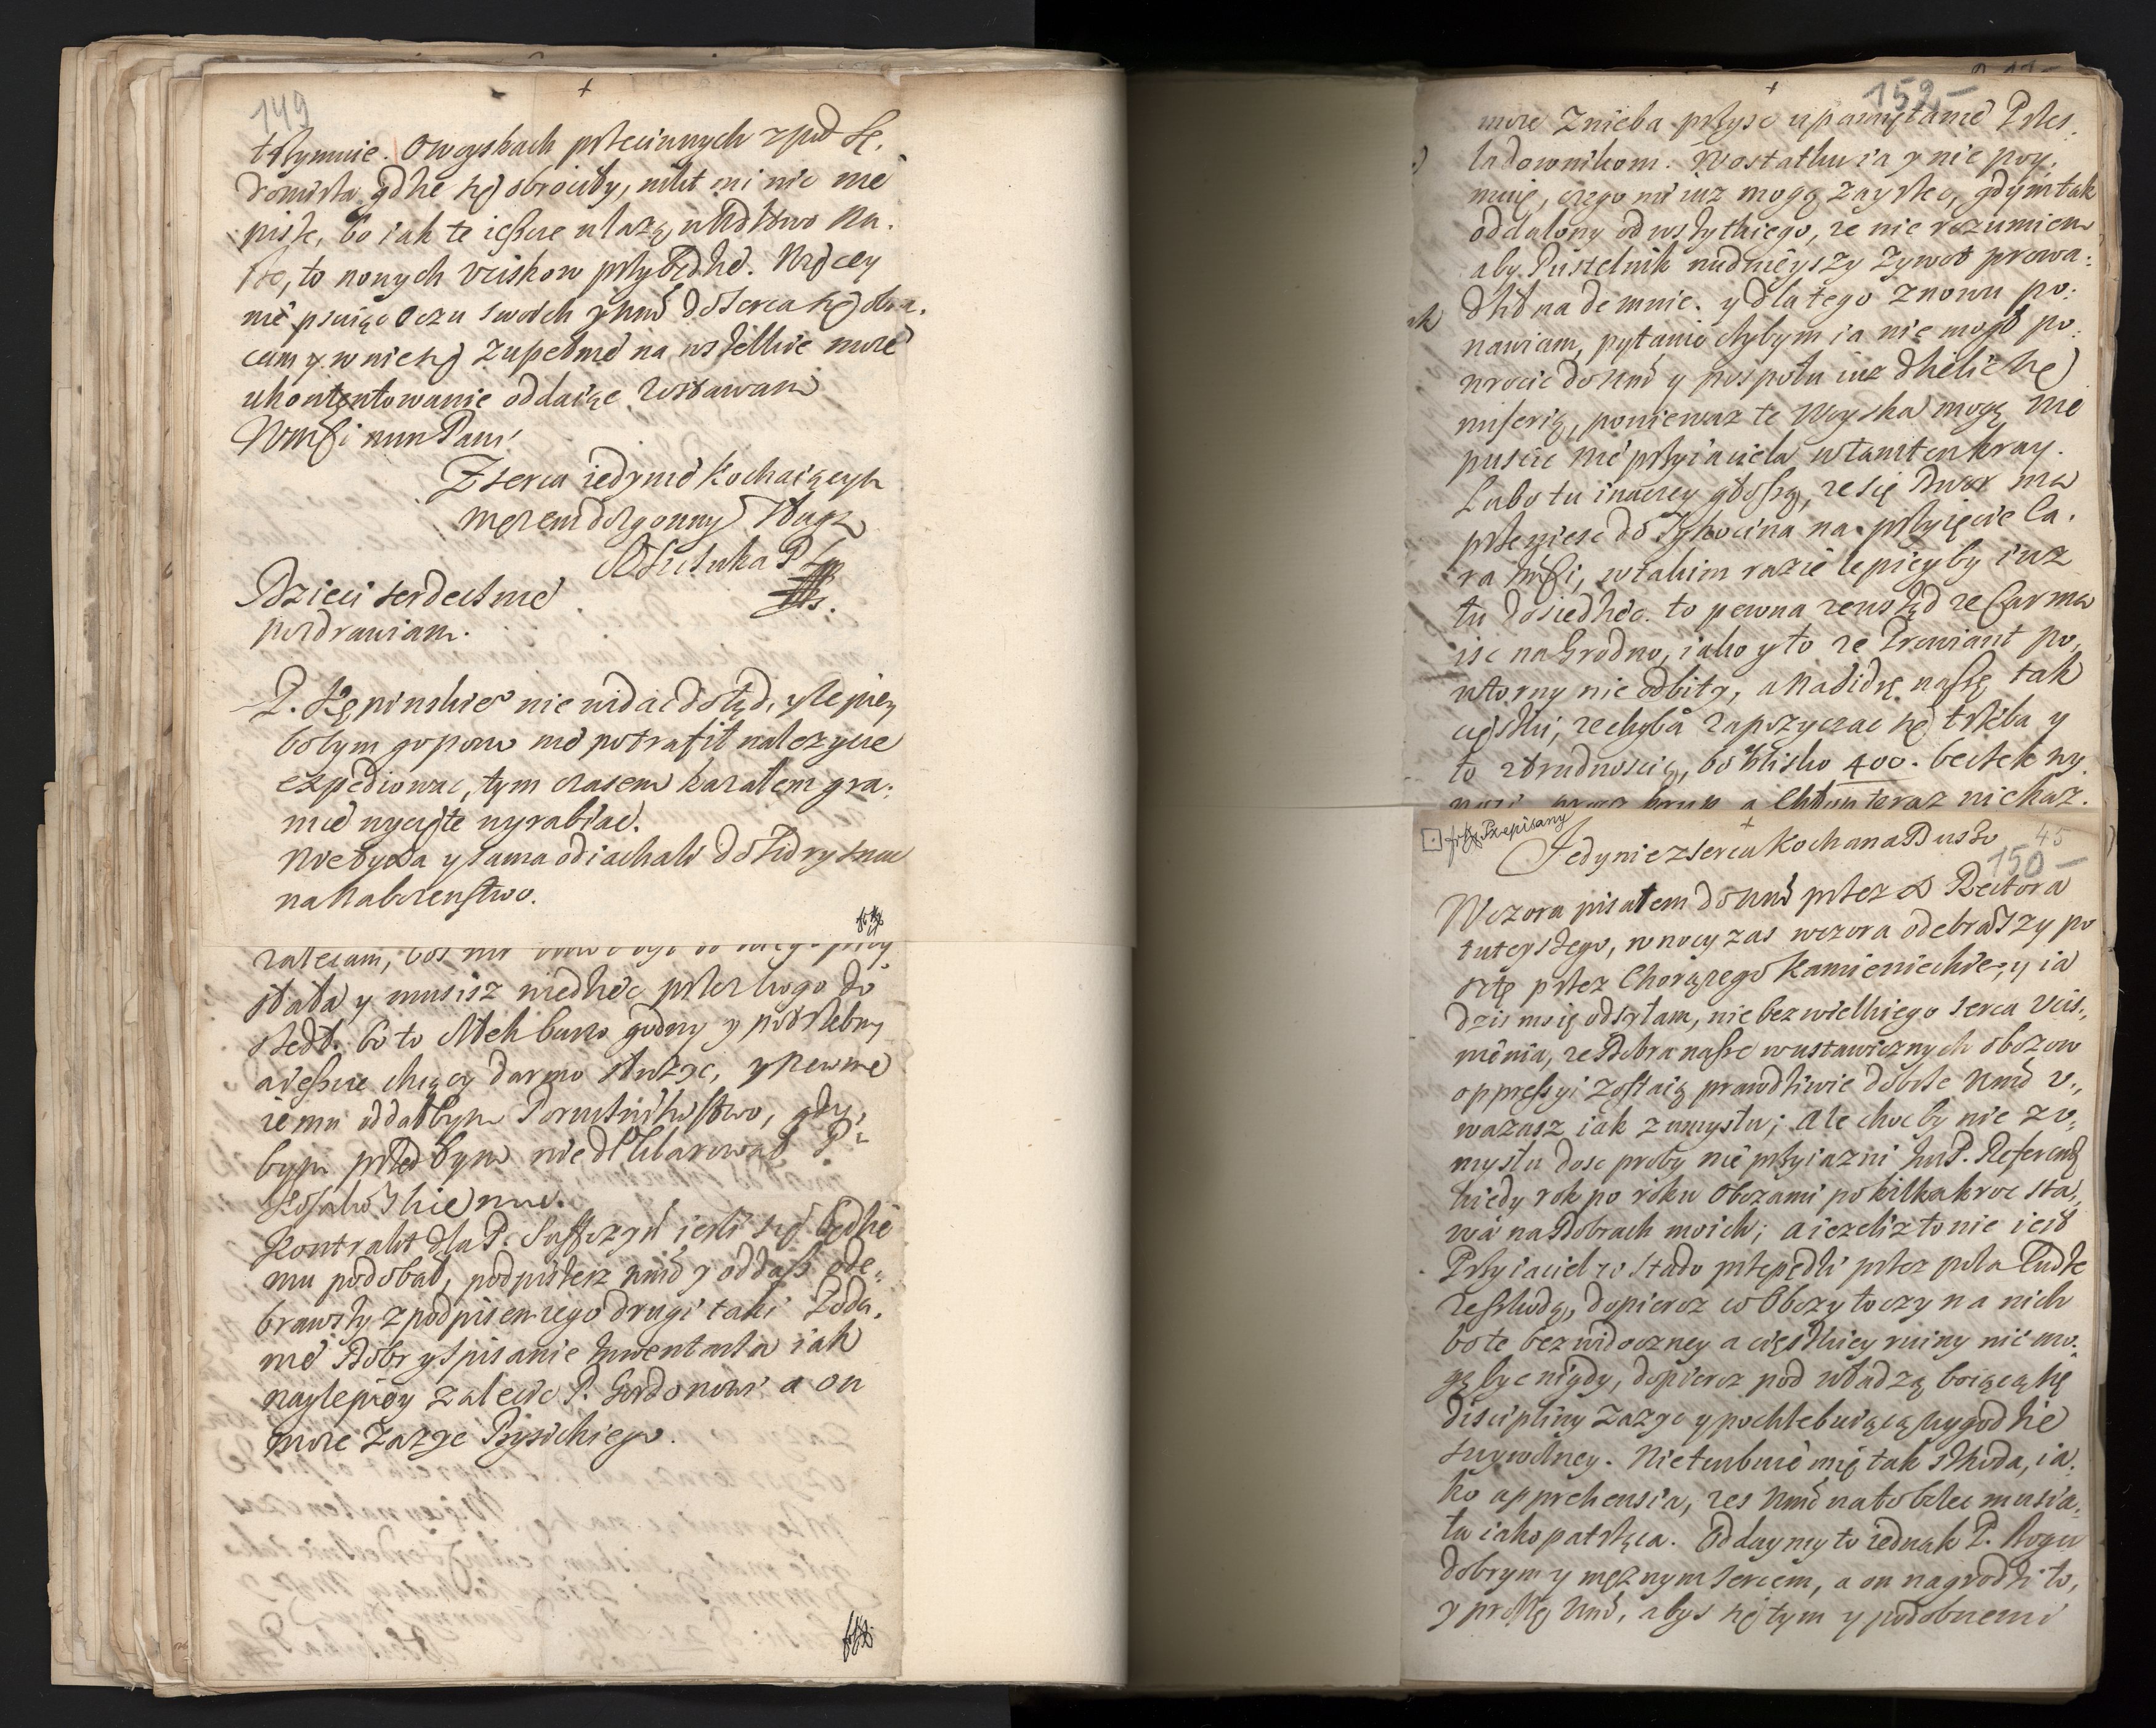 149
+
trzymuie. O woyskach przeciwnych zpod Sę,
domirza gdzie się obrociły, nikt mi nic nie
pisze, bo iak te ieszcze wlazą w Xdztwo Na,
sze, to nowych uciskow przybędzie. Więcey
nie psuiąc Oczu swoich Wmć do serca się obra,
cam y w nie się zupełnie na wszelkie moie
ukontentowanie oddaiąc zostawam
Wmści mm Pani
Z serca iedynie Kochaiącym
mężem dozgonny Sługa
Dzieci serdecznie
pozdrawiam.
P. Kępinskiego nie widac dotąd, y lepiey
bo bym goponno nie potrafił nalezycie
expediowac, tym czasem kazałem gra,
nice wycięte wyrabiac.
na Nabozenstwo.
zalecam,
stała y musisz wiedziec przez kogo do
szedł. bo to Człek barzo godny y potrzebny
a ieszcze chcący darmo słuzyc, y pewnie
iemu oddałbym Porucznikostwo, gdy,
bym przed tym nie deklarował P.
Kossakowskiemu.
Kontrakt dla P. Suffczyń iesli się będzie
mu podobał, podpiszesz Wmć y oddasz ode,
brawszy z podpisem iego drugi taki. Poda,
nie Dobr y spisanie Inwentarza iak
naylepiey zalecic P. Gordonowi a on
moze zazyc Pzysichiego.
152
+
moze z nieba przysc upamiętanie Przes,
ladownikom. W ostatku ia y nie poy,
muię, czego mi iuz mogą zayrzec, gdym tak
oddalony od wszytkiego, ze nie rozumiem
aby Pustelnik nudnieyszy zywot prowa,
dził nademnie. y dla tego znowu po,
nawiam, pytanie chybym ia nie mogł po,
wrocic do Wmć y pospołu iuz dzielic się
miserią, poniewaz te Woyska mogą nie
puscic nieprzyiaciela w tamten kray.
Lubo tu inaczey głoszą, ze się Dwor ma
przeniesc do Tykocina na przyięcie Ca,
ra Jmści, w takim razie lepiey by iuz
tu dosiedziec. to pewna zewsząd ze Car ma
isc na Grodno, iako y to ze Prowiant po,
wtorny nie odbity, a na Biedrę naszę tak
cięszki, ze chyba zapozyczac się trzeba y
to z trudnoscią, bo blisko 400. beczek wy,
a Chłop teraz nie kaz.
Przepisany
+
45
150
Jedynie z serca Kochana Duszo
Wczora pisałem do Wmć przez X Rectora
tuteyszego, w nocy zas wczora odebrałszy po
cztę przez Chorązego Kamienieckie, y ia
dzis moię odsyłam, nie bez wielkiego serca ucis,
nienia, ze Dobra nasze w ustawicznych obozow
oppressyi zostaią prawdziwie dobrze Wmć u,
wazasz iak z umysłu; Ale chocby nie z u,
mysłu dosc proby nie przyiazni JmP. Referend
kiedy rok po roku Obozami po kilkakroc sta,
wa na Dobrach moich; a iezeliz to nie iest
Przyiaciel co stado przepędzi przez pola ludzkie
ze szkodą, dopieroz co Obozy toczy na nich
bo te bez widoczney a cięszkiey ruiny nie mo,
gą byc nigdy, dopieroz pod władzą boiącą się
discipliny zazyc y pochlebuiącą wygodzie
swywolney. Nie turbuie mię tak szkoda, ia,
ko apprehensia, zes Wmć na to bolec musia,
ła iako patrząca. Oddaymy to iednak P. Bogu
dobrym y męznym sercem, a on nagrodzi to,
y proszę Wmć, abys się tym y podobnemi